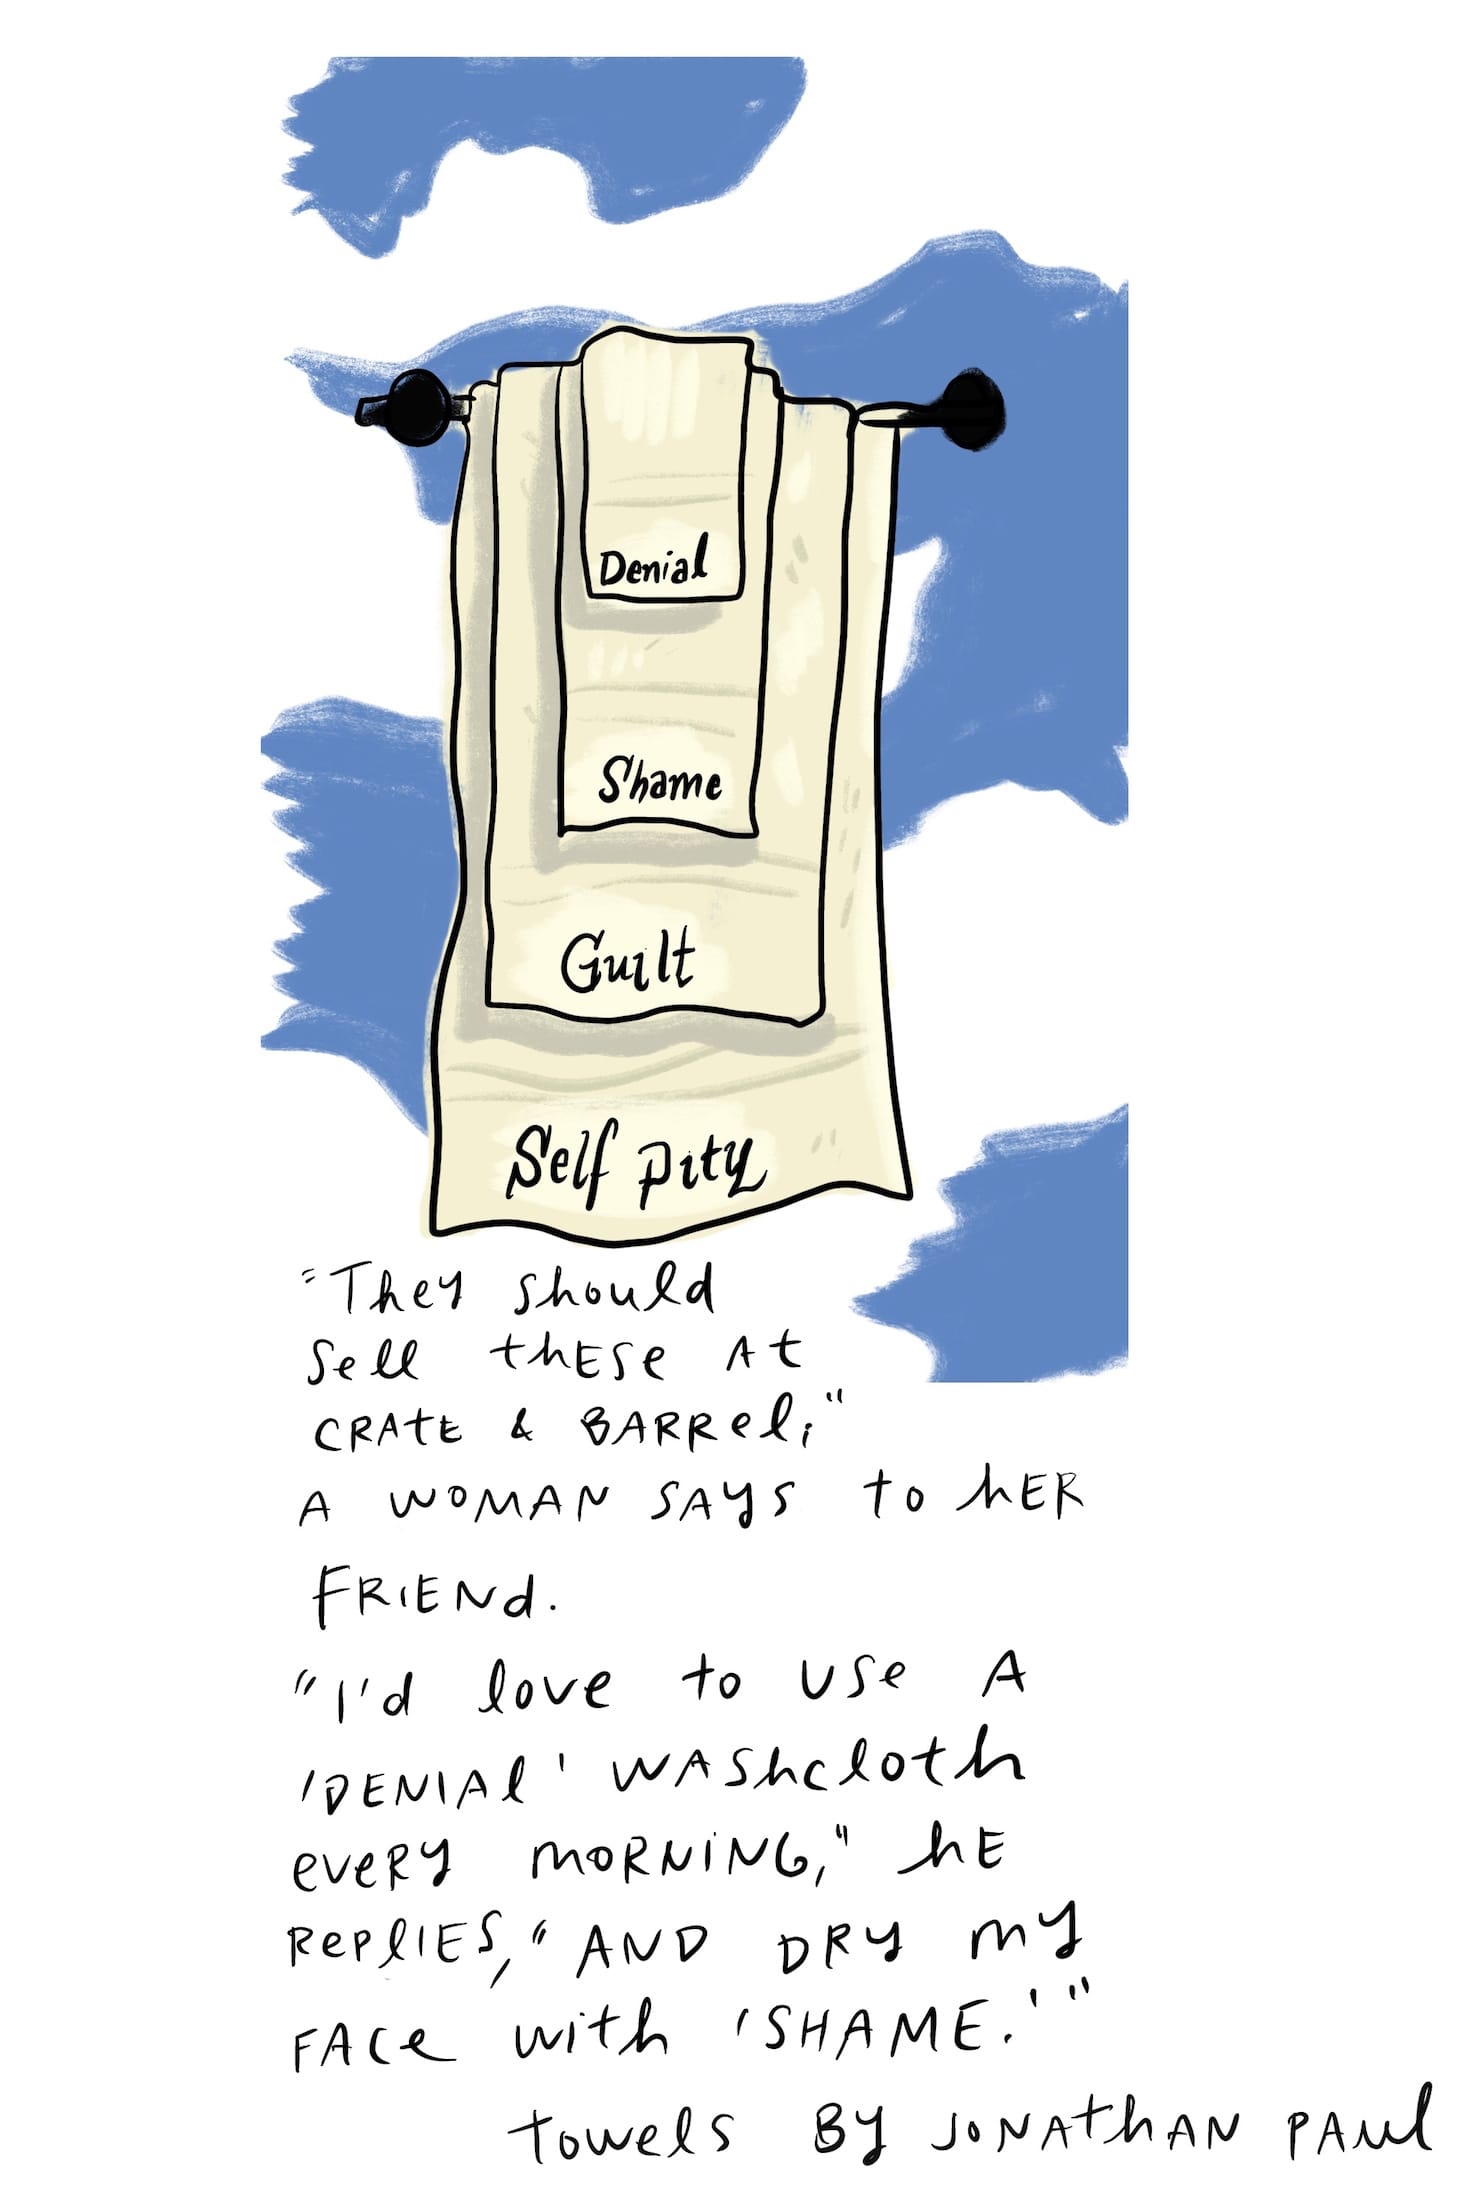 Denial
Shame
Guilt
Self pity
"They should
sell thESe At
CRAtE & BARRel,"
A WOMAN SAYS to hER
FRIENd.
"I'd love to use A
'DENIAl' WAShcloth
eveRY mORNiNG," hE
RePlIES, "AND DRY my
FACe with 'SHAME.'"
towels BY JONAthAN PAul